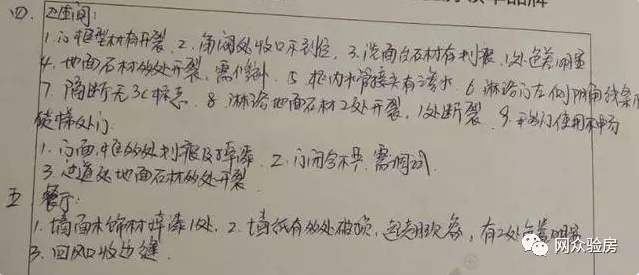 四. 卫生间:
1. 门框型材有开裂. 2. 角阀处收口不到位. 3. 洗面台石材有划裂. 1处色差明显
4. 地面石材多处开裂, 需修补. 5. 柜内水管接头有渗水. 6 淋浴门左侧阴角线条
7. 隔断无3C标志. 8. 淋浴地面石材2处开裂, 1处断裂. 9. 门使用不畅
楼梯处门:
1. 门面, 框多处划痕及掉漆. 2. 门闭合不严. 需调试.
3. 过道处地面石材多处开裂
五 餐厅:
1. 墙面木饰材掉漆1处. 2. 墙纸有多处破损, 起翘现象, 有2处色差明显
3. 回风口收边缝.
网众验房